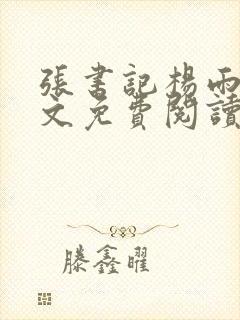 張書記楊雨
文免費閱讀
滕鑫曜